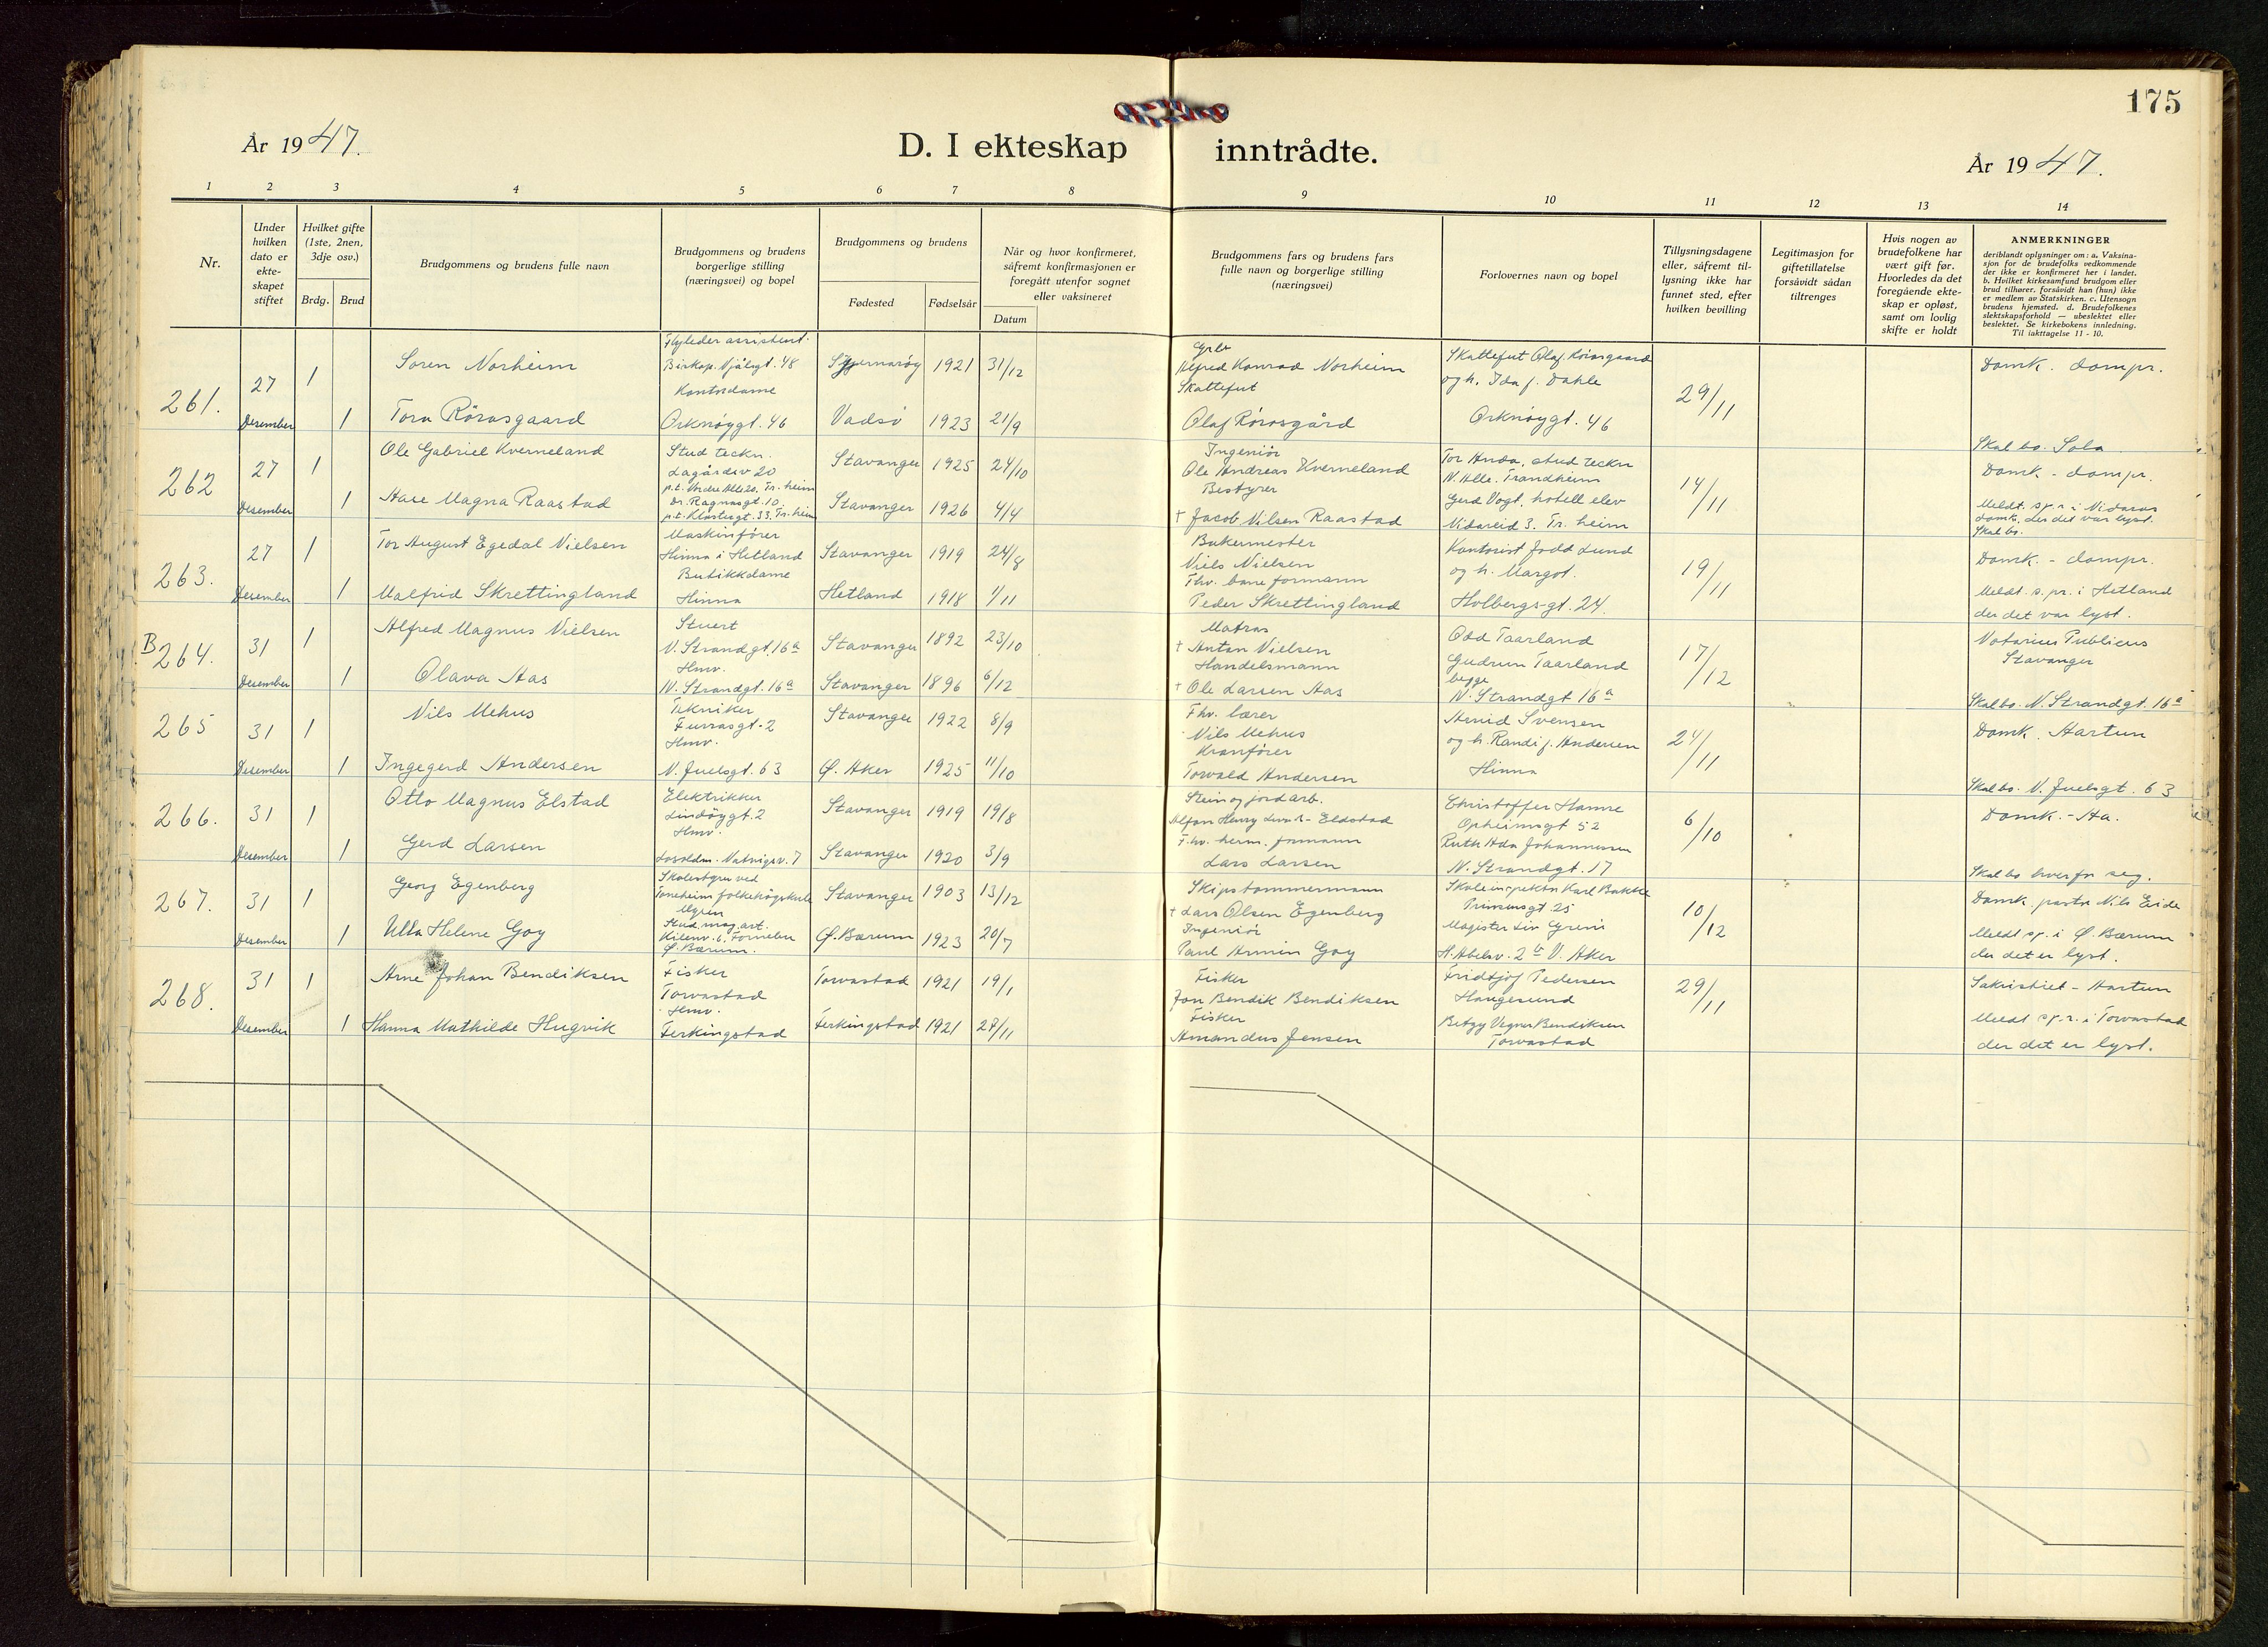 175
År 1947.
D. I ekteskap inntrådte.
År 1947.
1 2 3 4 5 6 7 8 9 10 11 12 13 14
Nr.
Under hvilken dato er ekteskapet stiftet
Hvilket gifte (1ste, 2nen, 3dje osv.)
Brdg. Brud
Brudgommens og brudens fulle navn
Brudgommens og brudens borgerlige stilling (næringsvei) og bopel
Brudgommens og brudens
Fødested Fødselsår
Når og hvor konfirmeret, såfremt konfirmasjonen er foregått utenfor sognet eller vaksineret
Datum
Brudgommens fars og brudens fars fulle navn og borgerlige stilling (næringsvei)
Forlovernes navn og bopel
Tillysningsdagene eller, såfremt tillysning ikke har funnet sted, efter hvilken bevilling
Legitimasjon for giftetillatelse forsåvidt sådan tiltrenges
Hvis nogen av brudefolkene har vært gift før. Hvorledes da det foregående ekteskap er opløst, samt om lovlig skifte er holdt
ANMERKNINGER
deriblandt oplysninger om: a. Vaksinasjon for de brudefolks vedkommende der ikke er konfirmeret her i landet. b. Hvilket kirkesamfund brudgom eller brud tilhører, forsåvidt han (hun) ikke er medlem av Statskirken. c. Utensogn brudens hjemsted. d. Brudefolkenes slektskapsforhold — ubeslektet eller beslektet. Se kirkebokens innledning. Til iakttagelse 11 - 10.
261. 27 Desember 1 1
Søren Norheim
Flygleder assistent.
Biskop Njålsgt. 48
1921 31/12
Alfred Konrad Norheim
Skattefut Olaf Rørosgaard
og h. Ida f. Dahle
29/11
Domk. dompr.
Tora Rørosgaard
Kontordame
Orknøygt. 46
Vadsø 1923 21/9
Skattefut
Olaf Rørosgård
Orknøygt. 46
Skal bo. Sola
262 27 Desember 1 1
Ole Gabriel Kverneland
Stud. teckn.
Lagårdsv 20
Stavanger 1925 24/10
Ingeniør
Ole Andreas Kverneland
stud teckn
14/11
Domk. - dompr.
Aase Magna Raastad
Dr. Ragnasgt. 10
p.t. Klostergt. 33. Tr. heim
Stavanger 1926 4/4
Bestyrer
† Jacob Nilsen Raastad
Gerd Vogt. hotell elev
Tr. heim
Meldt. s.pr. i Nidaros
domk. der det var lyst.
Skal bo.
263. 27 Desember 1 1
Tor August Egedal Nielsen
Maskinfører
Hinna i Hetland
Stavanger 1919 24/8
Bakermester
Niels Nielsen
Kontorist Lund
og h. Margot.
19/11
Domk. - dompr.
Malfrid Skrettingland
Butikkdame
Hinna
Hetland 1918 1/11
Fhv. baneformann
Peder Skrettingland
Holbergs-gt. 24.
Meldt. s. pr. i Hetland
der det var lyst.
B 264. 31 Desember 1 1
Alfred Magnus Nielsen
Stuert
N. Strandgt. 16a
Stavanger 1892 23/10
Matros
† Anton Nielsen
Odd Taarland
Gudrun Taarland
17/12
Notarius Publicus
Stavanger
Olava Aas
Hmv.
N. Strandgt. 16a
Stavanger 1896 6/12
Handelsmann
† Ole Larsen Aas
begge
N. Strandgt 16a
Skal bo. N. Strandgt. 16a
265 31 Desember 1 1
Nils Mehus
Tekniker
Furrasgt. 2
Stavanger 1922 8/9
Fhv. lærer
Nils Mehus
Arvid Svensen
og h. Randi f. Andersen
24/11
Domk. Aartun
Ingegerd Andersen
Hmv.
N. Juelsgt. 63
Ø. Aker 1925 11/10
Kranfører
Torvald Andersen
Hinna
Skal bo. N. Juelsgt. 63
266. 31 Desember 1 1
Otto Magnus Elstad
Elektrikker
Lindøygt. 2
Stavanger 1919 19/8
Stein og jordarb.
Christoffer Hamre
Opheimsgt 52
6/10
Domk. - Aa.
Gerd Larsen
Hmv.
Stavanger 1920 3/9
F.hv. herm. formann
Lars Larsen
Ruth Ada Johannessen
N. Strandgt. 17
Skal bo hver for seg.
267. 31 Desember 1 1
Georg Egenberg
Skolestyrer ved
Toneheim folkehøgskule
Stavanger 1903 13/12
Skipstømmermann
† Lars Olsen Egenberg
Skoleinspektør Karl Bakke
Prinsensgt. 25
10/12
Domk. pastor Nils Eide
Ulla Helene Goy
Stud. mag. art.
Ø. Bærum.
Ø. Bærum 1923 20/7
Ingeniør
Paul Armin Goy
Magister Liv Greni
H. Abelsv. 2b V. Aker
Meldt sp. i Ø. Bærum
der det er lyst.
268. 31 Desember 1 1
Arne Johan Bendiksen
Fisker
Torvastad
Torvastad 1921 19/1
Fisker
Jon Bendik Bendiksen
Fridtjof Pedersen
Haugesund
29/11
Sakristiet - Aartun
Hanna Mathilde Hugvik
Hmv.
Ferkingstad
Ferkingstad 1921 27/11
Fisker
Amandus Jensen
Bendiksen
Torvastad
Meldt s.p.r. i Torvastad
der det er lyst.